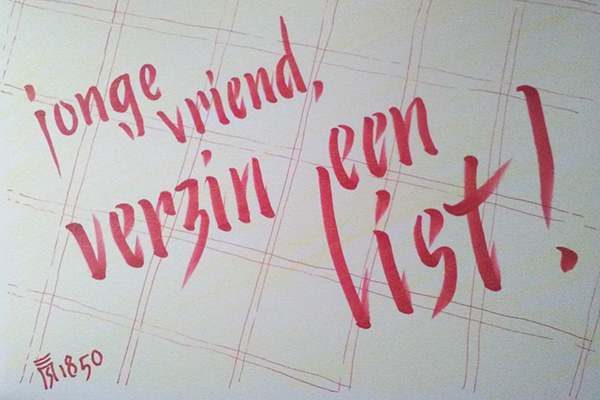 jonge vriend,
verzin een
list!
1850